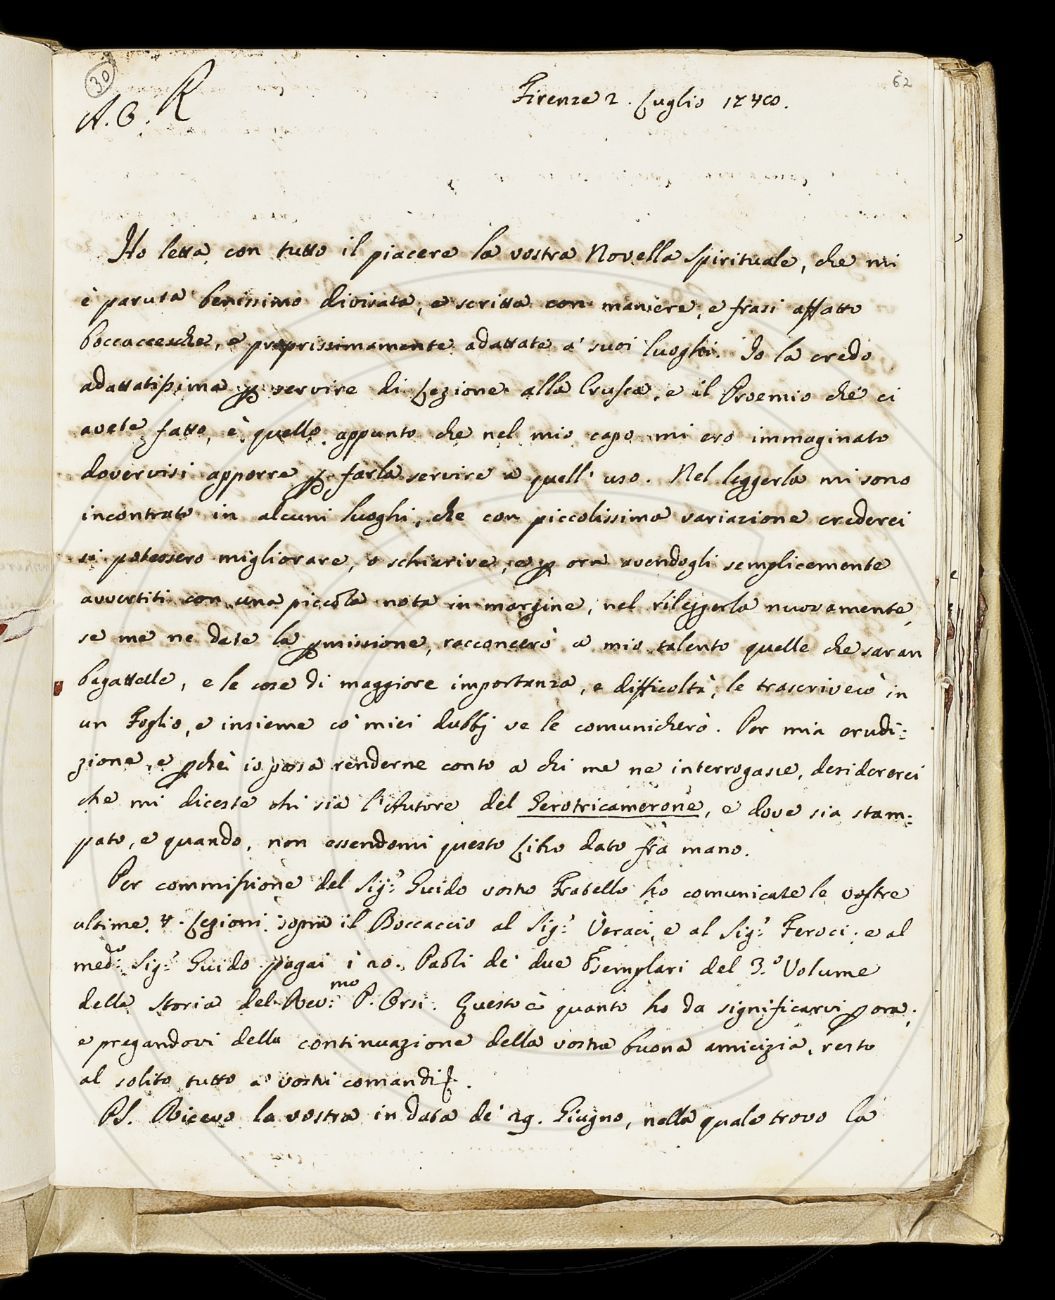 30
62
A. C. R
Firenze 2. Luglio 1740.
Ho letta con tutto il piacere la vostra Novella spirituale, che mi
è paruta benissimo divisata, e scritta con maniere, e frasi affatto
Boccaccesche, e proprissimamente adattate a' suoi luoghi. Io la credo
adattatissima ꝑ servire di Lezione alla Crusca, e il Proemio che ci
avete fatto, è quello appunto che nel mio capo mi ero immaginato
dovervisi apporre ꝑ farla servire a quell' uso. Nel leggerla mi sono
incontrato in alcuni luoghi, che con piccolissima variazione crederei
si potessero migliorare, o schiarire, e ꝑ ora avendogli semplicemente
avvertiti con una piccola nota in margine, nel rileggerla nuovamente,
se me ne date la ꝑmissione, racconcerò a mio talento quelle che saran
bagattelle, e le cose di maggiore importanza, e difficoltà, le trascriverò in
un Foglio, e insieme co' miei dubbj ve le comunicherò. Per mia erudi=
zione, e ꝑchè io possa renderne conto a chi me ne interrogasse, desidererei
che mi diceste chi sia l'Autore del Gerotricamerone, e dove sia stam=
pato, e quando, non essendomi questo Libro dato fra mano.
Per commissione del Sig.r Guido vostro Fratello ho comunicate le vostre
ultime 4. Lezioni sopra il Boccaccio al Sig.r Veraci, e al Sig.r Feroci; e al
med.o Sig.r Guido pagai i 20. Paoli de' due Esemplari del 3.o Volume
della Storia del Rev.mo P. Orsi. Questo è quanto ho da significarvi ꝑ ora;
e pregandovi della continuazione della vostra buona amicizia, resto
al solito tutto a' vostri comandi.
PS. Ricevo la vostra in data de' 29. Giugno, nella quale trovo la